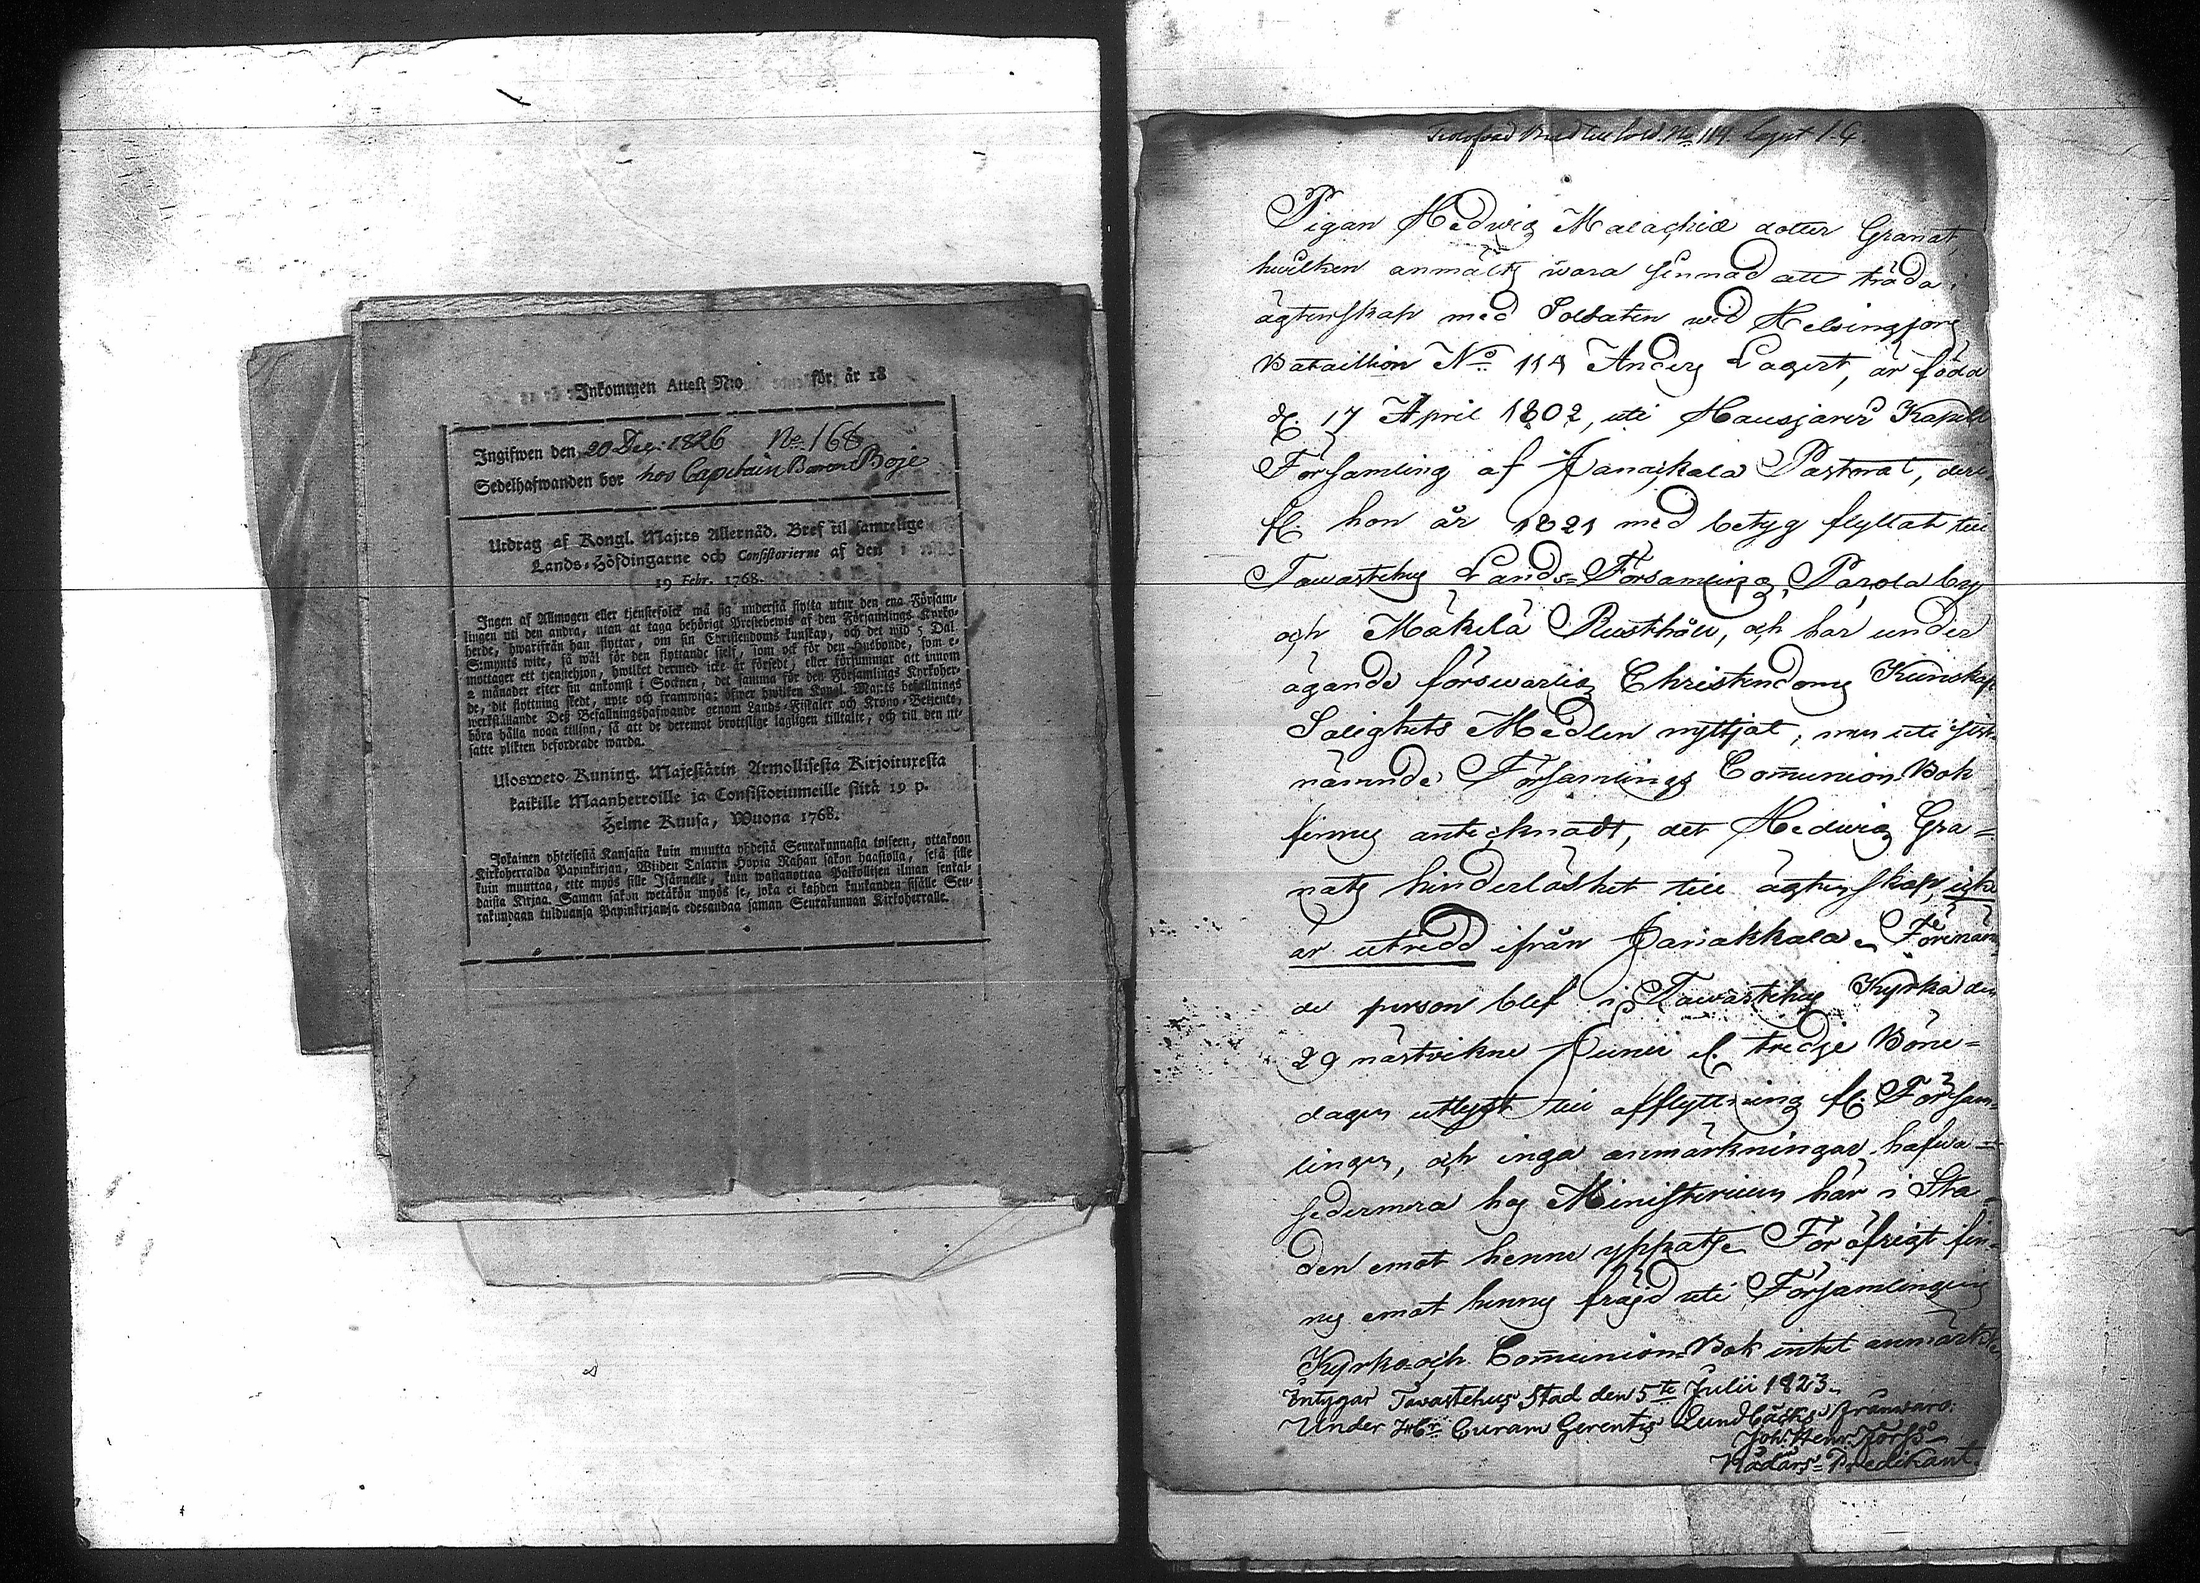 Inkommen Attest N:o för år 18
Ingifwen den 20 Dec: 1826 No 168
Sedelhafwanden bor hos Capitain Baron Boje
Utdrag af Kongl. Maj:ts Allernåd. Bref til samtelige
Lands-Höfdingarne och Consistorierne af den
19 Febr. 1768.
Ingen af Allmogen eller tjenstefolck må sig understå flytta utur den ena Försam-
lingen uti den andra, utan at taga behörigt Prestebewis af den Församlings Kyrko-
herde, hwarifrån han flyttar, om sin Christendoms kunskap, och det wid 5 Dal.
S:mynts wite, så wäl för den flyttande sielf, som ock för den Husbonde, som e-
mottager ett tjenstehjon, hwilket dermed icke är försedt, eller försummar att innom
2 månader efter sin ankomst i Socknen, det samma för den Församlings Kyrkoher-
de, dit flyttning skedt, upte och framwisa; öfwer hwilken Kongl. Maj:ts befallnings
werkställande Deß Befallningshafwande genom Lands-Fiskaler och Krono-Betjente,
böra hålla noga tillsyn, så att de deremot brottslige lagligen tilltalte, och till den ut-
satte plikten befordrade warda.
Ulosweto Kuning. Majestätin Armollisesta Kirjoituxesta
kaikille Maanherroille ja Consistoriumeille siitä 19 p.
Helme Kuusa, Wuona 1768.
Jokainen yhteisestä Kansasta kuin muutta yhdestä Seurakunnasta toiseen, ottakoon
Kirkoherralda Papinkirjan, Wijden Talarin Hopia Rahan sakon haastolla, sekä sille
kuin muuttaa, ette myös sille Isännelle, kuin wastanottaa Palkollisen ilman senkal-
daista Kirjaa. Saman sakon wetäkön myös se, joka ei kahden kuukauden sisälle Seu-
rakundaan tulduansa Papinkirjansa edesandaa saman Seurakunnan Kirkoherralle.
No 114. Lagert
Pigan Hedwig Malachiæ dotter Granat,
hwilken anmälts wara sinnad att träda i
ägtenskap med Soldaten wid Helsingfors
Bataillion No 114 Anders Lagert, är född
d. 17 April 1802, uti Hausjärwi Kapell
Församling af Janackala Pastorat, deri-
fr. hon år 1821 med betyg flyttat till
Tawastehus Lands-Församling, Parola by
och Mäkelä Rusthåll, och har under
ägande förswarlig Christendoms Kunskap
Salighets Medlen nyttjat, men uti sist-
nämnde Församlings Communion Bok
finnes antecknadt, det Hedwig Gra-
nats hinderlöshet till ägtenskap, icke
är utredd ifrån Janakkala. Förenäm-
de person blef i Tawastehus Kyrka den
29 nästvikne Junii el. tredje Böne-
dagen utlyst till afflyttning fr. Försam-
lingen, och inga anmärkningar hafwa
sedermera hos Ministerium här i Sta-
den emot henne yppats. För öfrigt fin-
nes emot hennes frägd uti Församlingens
Kyrko- och Communion-Bok intet anmärkt.
Intygar Tawastehus Stad den 5te Julii 1823.
Under Curam Gerentis Lundbäcks frånwaro:
Joh. Henr. Forss
Rådārs-Predikant.